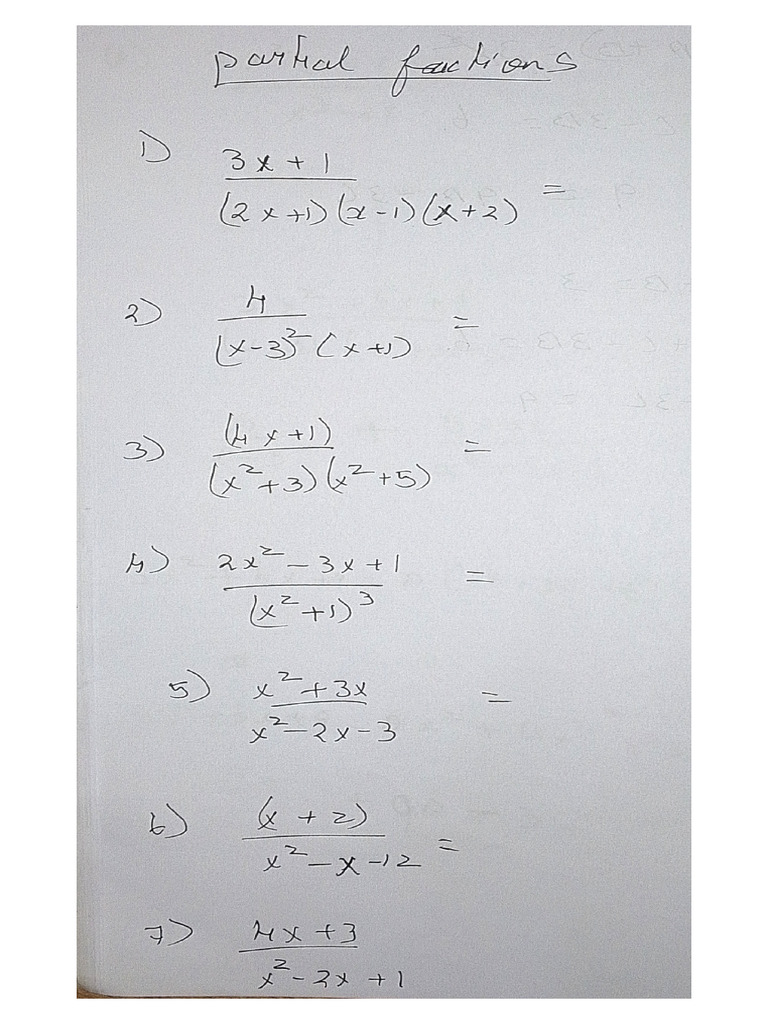 partial fractions
1) 3x + 1 / (2x+1)(x-1)(x+2) =
2) 4 / (x-3)² (x+1) =
3) (4x+1) / (x²+3)(x²+5) =
4) 2x² - 3x + 1 / (x²+1)³ =
5) x² + 3x / x² - 2x - 3 =
6) (x + 2) / x² - x - 12 =
7) 4x + 3 / x² - 2x + 1